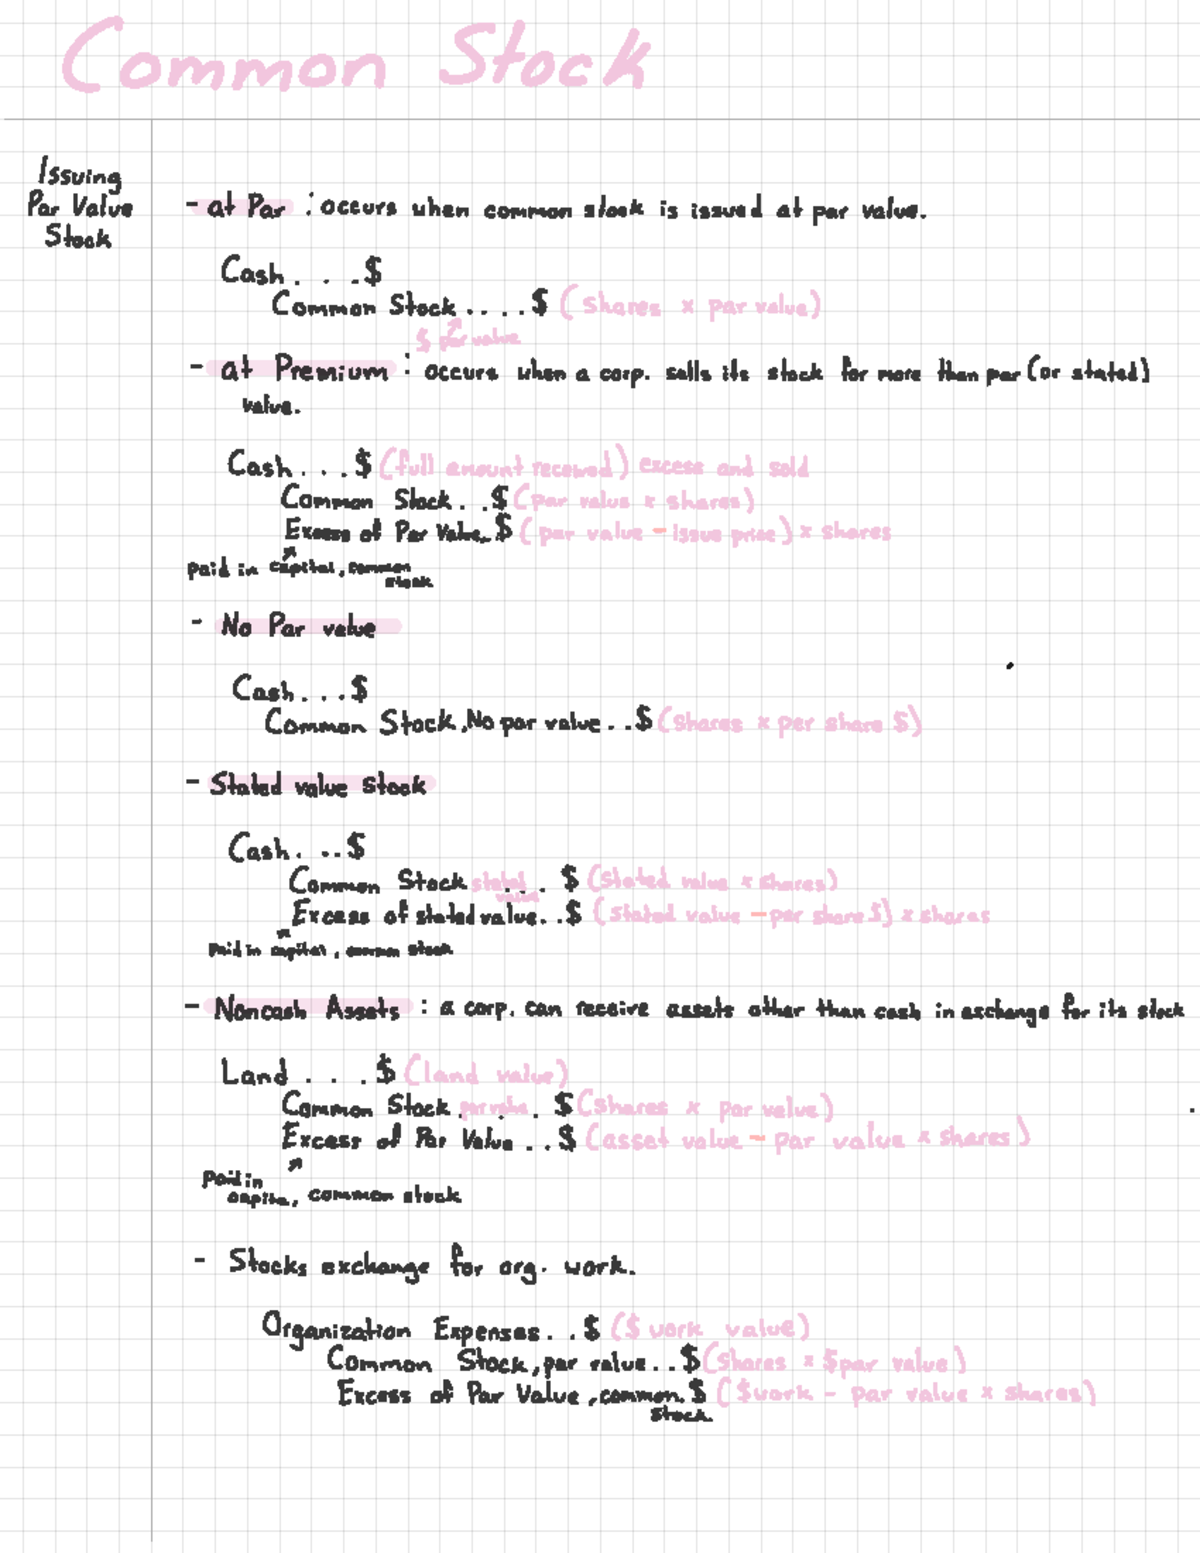 Common Stock
Issuing
Par Value
Stock
- at Par : occurs when common stock is issued at par value.
Cash. . . $
Common Stock . . . . $ (shares x par value)
$ par value
- at Premium : occurs when a corp. sells its stock for more than par (or stated)
value.
Cash. . . $ (full amount received) excess and sold
Common Stock. . $ (par value x shares)
Excess of Par Value. $ (par value - issue price) x shares
paid in capital, common
stock
- No Par value
Cash. . . $
Common Stock, No par value . . $ (shares x per share $)
- Stated value stock
Cash. . . $
Common Stock stated . . . $ (stated value x shares)
value
Excess of stated value. . $ (stated value - per share $) x shares
paid in capital, common stock
- Noncash Assets : a corp. can receive assets other than cash in exchange for its stock
Land . . . $ (land value)
Common Stock par value . $ (shares x par value)
Excess of Par Value . . $ (asset value - par value x shares)
paid in
capital, common stock
- Stocks exchange for org. work.
Organization Expenses. . $ ($ work value)
Common Stock, par value . . $ (shares x $par value)
Excess of Par Value, common $ ($work - par value x shares)
stock.